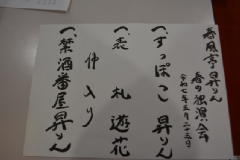 春風亭昇りん
春の独演会
令和七年三月二十三日
一、すっぽこ 昇りん
一、表札 遊花
仲入り
一、禁酒番屋 昇りん